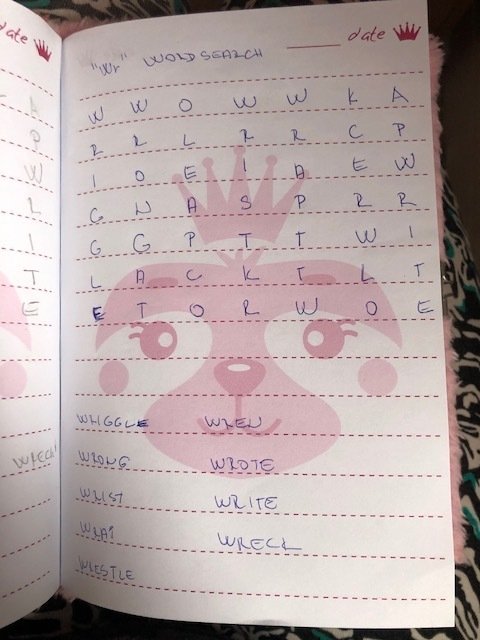 date
A
P
W
R
I
T
E
WRECK
date
"Wr" WORDSEARCH
W W O W W K A
R R L R R C P
I O E I A E W
G N A S P R R
G G P T T W I
L A C K T L T
E T O R W O E
WRIGGLE WREN
WRONG WROTE
WRIST WRITE
WRAP WRECK
WRESTLE